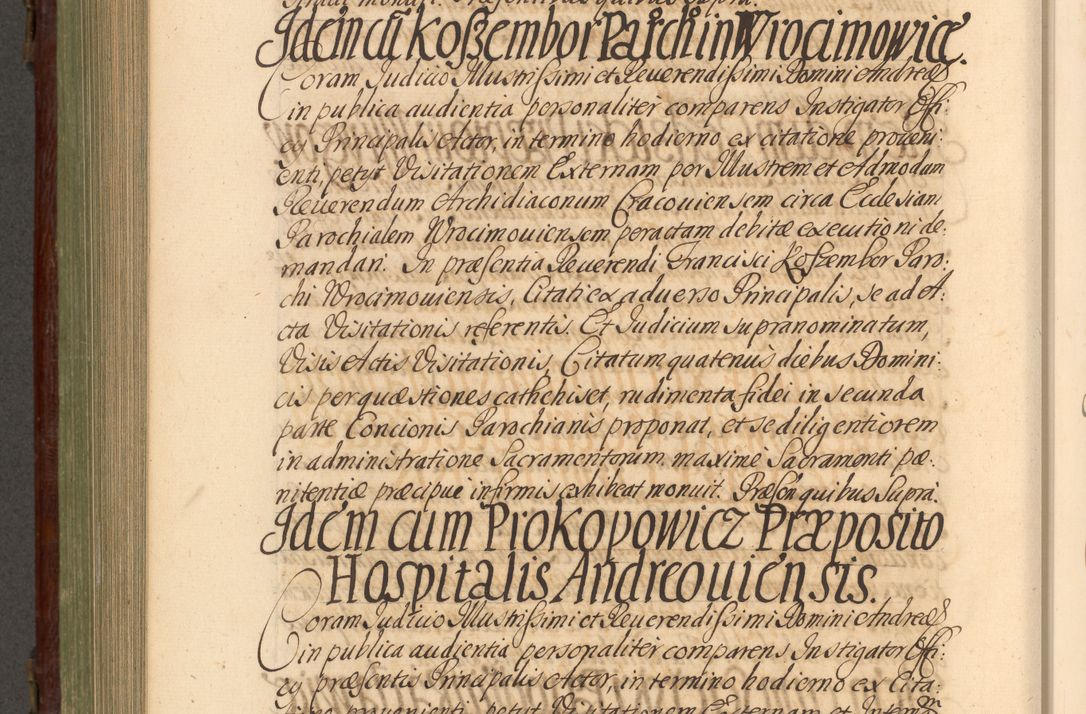 Idem cũ Koszembor Parch in Wrocimowice.
Coram Judicio Illustrissimi et Reuerendissimi Domini Andreæ
in publica audientia personaliter comparens Instigator Offi:
cÿ Principalis Actor, in termino hodierno ex citatione proueni:
enti, petyt Visitationem Externam per Illustrem et Admodum
Reuerendum Archidiaconum Cracouiensem circa Ecclesiam
Parochialem Wrocimouiensem peractam debitæ executioni de:
mandari. In præsentia Reuerendi Francisci Koszembor Paro:
chi Wrocimouiensis, Citati ex aduerso Principalis, se ad A:
cta Visitationis referentis. Et Judicium supranominatum,
Visis Actis Visitationis, Citatum quatenus diebus Domini:
cis per quæstiones cathehiset, rudimenta fidei in secunda
parte Concionis Parochianis proponat, et se diligentiorem
in administratione Sacramentorum maxime Sacramenti pæ:
nitentiæ præcipue infirmis exhibeat monuit. Præsen quibus Supra.
Idem cum Prokopowicz Præposito
Hospitalis Andreouiensis.
Coram Judicio Illustrissimi et Reuerendissimi Domini Andreæ
in publica audientia personaliter comparens Instigator Offi:
cÿ præsentis Principalis Actor, in termino hodierno ex Cita:
prouenienti petyt Visitationem Externam et